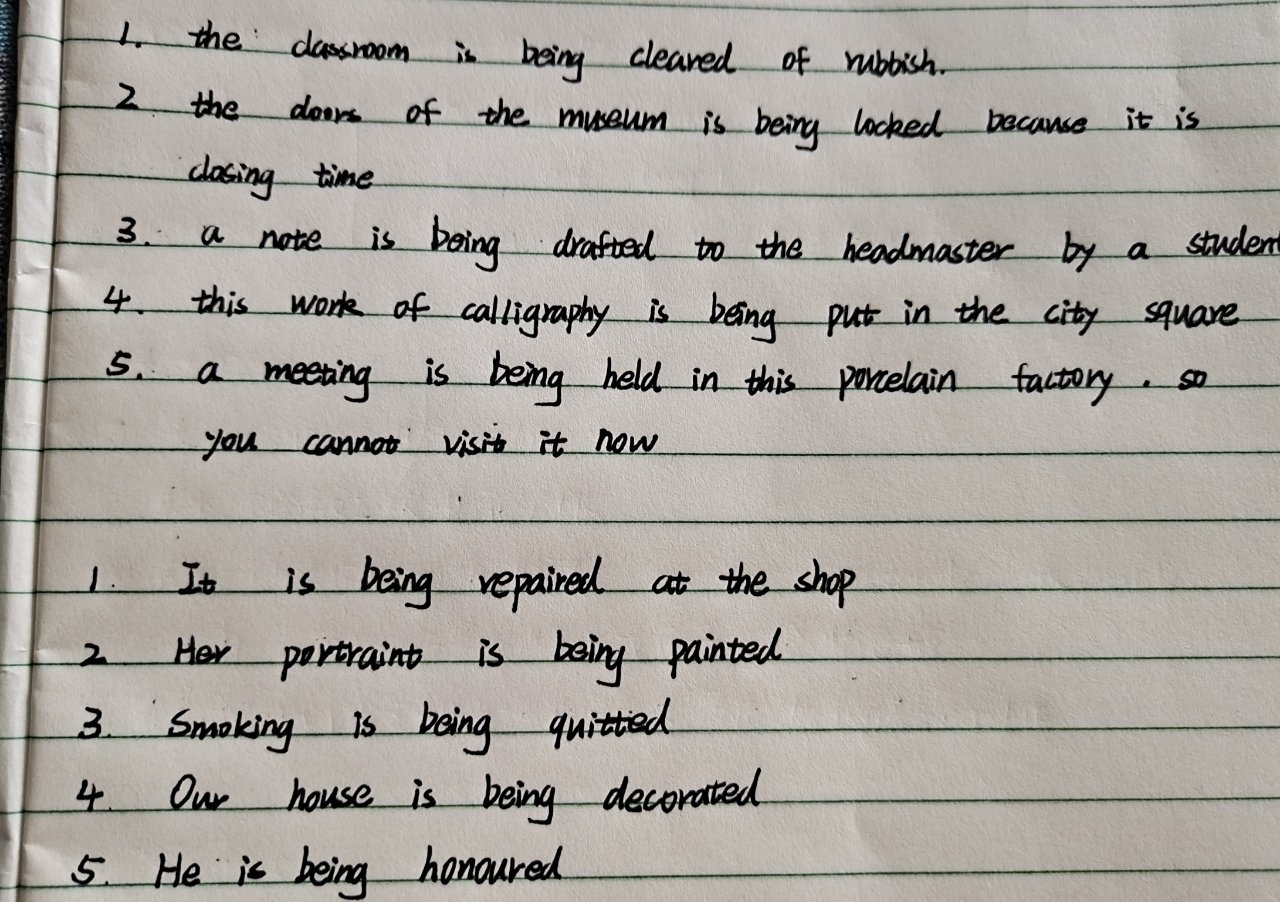 1. the classroom is being cleared of rubbish.
2 the doors of the museum is being locked because it is
closing time
3. a note is being drafted to the headmaster by a student
4. this work of calligraphy is being put in the city square
5. a meeting is being held in this porcelain factory. so
you cannot visit it now
1. It is being repaired at the shop
2 Her portraint is being painted
3. Smoking is being quitted
4. Our house is being decorated
5. He is being honoured